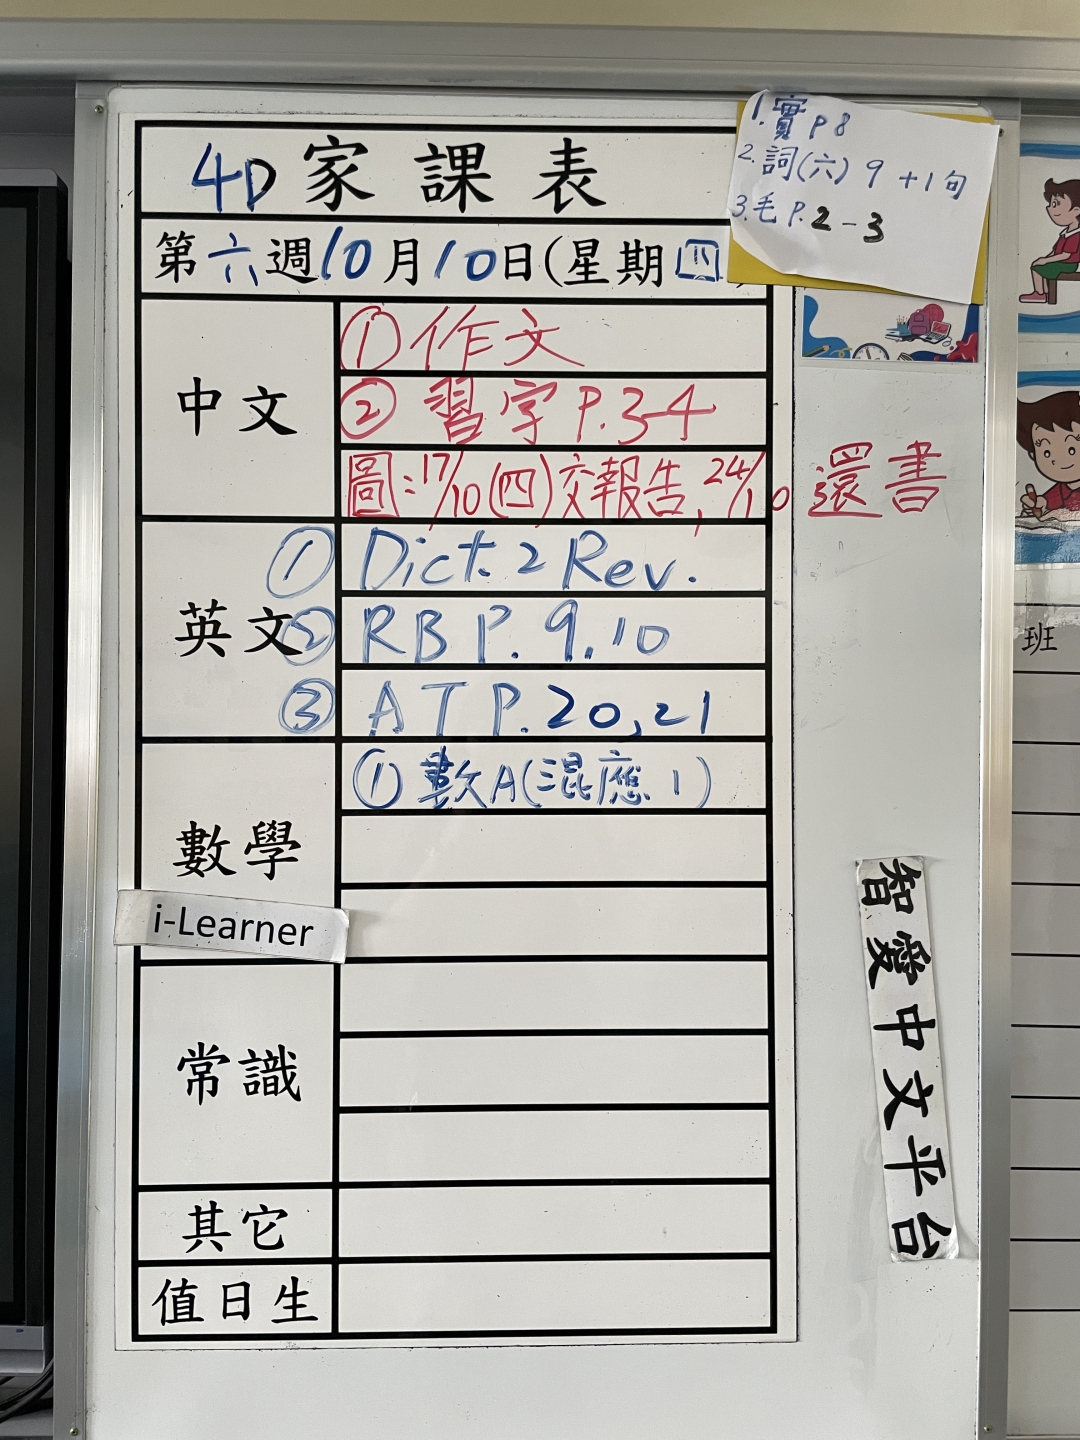 1. 實 P 8
2. 詞(六) 9 +1句
3. 毛 P. 2-3
4D 家課表
第六週10月10日(星期四)
中文
① 作文
② 習字 P.3-4
圖:17/10(四)交報告, 24/10 還書
英文
① Dict. 2 Rev.
② RB P. 9,10
③ AT P. 20, 21
數學
① 數A(混應 1)
i-Learner
常識
其它
值日生
智愛中文平台
班